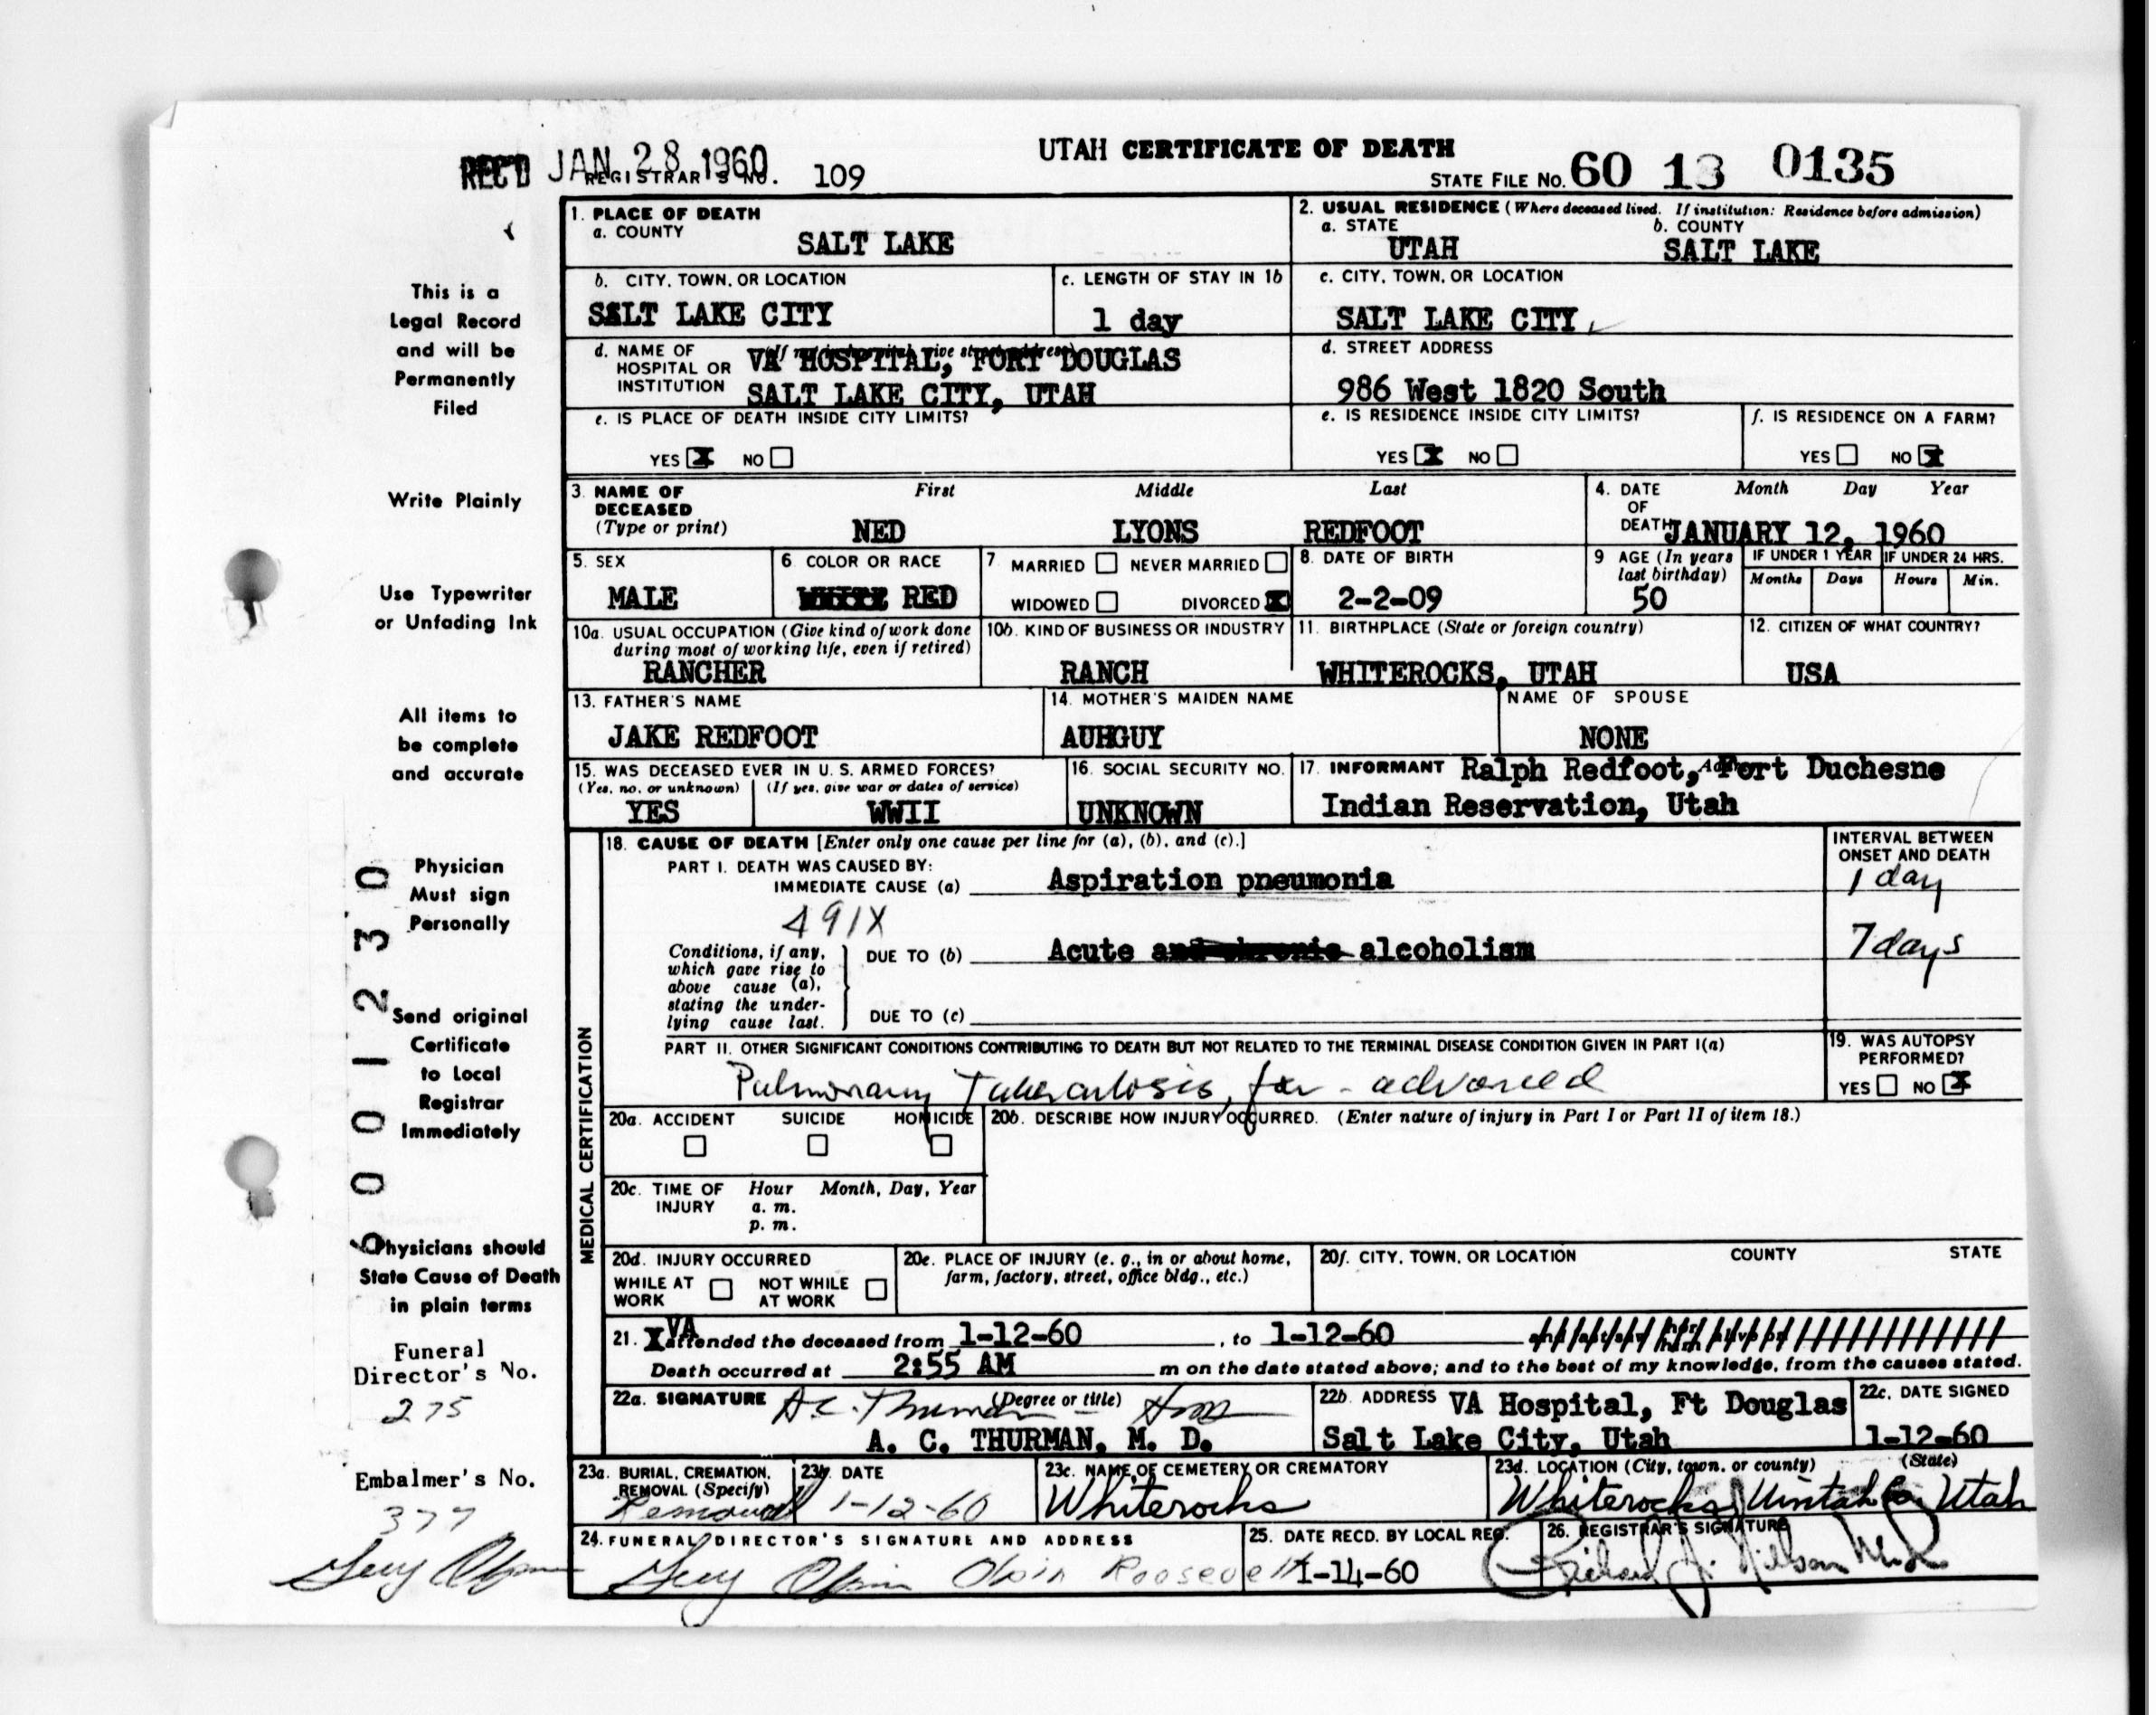 REC'D JAN 28 1960 REGISTRAR'S NO. 109
UTAH CERTIFICATE OF DEATH
STATE FILE No. 60 13 0135
This is a
Legal Record
and will be
Permanently
Filed
Write Plainly
Use Typewriter
or Unfading Ink
All items to
be complete
and accurate
Physician
Must sign
Personally
Send original
Certificate
to Local
Registrar
Immediately
Physicians should
State Cause of Death
in plain terms
Funeral
Director's No.
275
Embalmer's No.
377
6001230
1. PLACE OF DEATH
a. COUNTY
SALT LAKE
2. USUAL RESIDENCE (Where deceased lived. If institution: Residence before admission)
a. STATE
UTAH
b. COUNTY
SALT LAKE
b. CITY, TOWN, OR LOCATION
SALT LAKE CITY
c. LENGTH OF STAY IN 1b
1 day
c. CITY, TOWN, OR LOCATION
SALT LAKE CITY
d. NAME OF HOSPITAL OR INSTITUTION
VA HOSPITAL, FORT DOUGLAS
SALT LAKE CITY, UTAH
d. STREET ADDRESS
986 West 1820 South
e. IS PLACE OF DEATH INSIDE CITY LIMITS?
YES X NO
e. IS RESIDENCE INSIDE CITY LIMITS?
YES X NO
f. IS RESIDENCE ON A FARM?
YES NO X
3. NAME OF DECEASED (Type or print)
First Middle Last
NED LYONS REDFOOT
4. DATE OF DEATH
Month Day Year
JANUARY 12, 1960
5. SEX
MALE
6. COLOR OR RACE
WHITE RED
7 MARRIED NEVER MARRIED
WIDOWED DIVORCED X
8. DATE OF BIRTH
2-2-09
9 AGE (In years last birthday)
50
IF UNDER 1 YEAR
Months Days
IF UNDER 24 HRS.
Hours Min.
10a. USUAL OCCUPATION (Give kind of work done during most of working life, even if retired)
RANCHER
10b. KIND OF BUSINESS OR INDUSTRY
RANCH
11. BIRTHPLACE (State or foreign country)
WHITEROCKS, UTAH
12. CITIZEN OF WHAT COUNTRY?
USA
13. FATHER'S NAME
JAKE REDFOOT
14. MOTHER'S MAIDEN NAME
AUHGUY
NAME OF SPOUSE
NONE
15. WAS DECEASED EVER IN U. S. ARMED FORCES?
(Yes, no, or unknown) (If yes, give war or dates of service)
YES WWII
16. SOCIAL SECURITY NO.
UNKNOWN
17. INFORMANT Ralph Redfoot, Fort Duchesne
Indian Reservation, Utah
MEDICAL CERTIFICATION
18. CAUSE OF DEATH [Enter only one cause per line for (a), (b), and (c).]
PART I. DEATH WAS CAUSED BY:
IMMEDIATE CAUSE (a) Aspiration pneumonia
INTERVAL BETWEEN ONSET AND DEATH
1 day
491X
Conditions, if any, which gave rise to above cause (a), stating the underlying cause last.
DUE TO (b) Acute and chronic alcoholism
7 days
DUE TO (c)
PART II. OTHER SIGNIFICANT CONDITIONS CONTRIBUTING TO DEATH BUT NOT RELATED TO THE TERMINAL DISEASE CONDITION GIVEN IN PART I(a)
Pulmonary Tuberculosis, far-advanced
19. WAS AUTOPSY PERFORMED?
YES NO X
20a. ACCIDENT SUICIDE HOMICIDE
20b. DESCRIBE HOW INJURY OCCURRED. (Enter nature of injury in Part I or Part II of item 18.)
20c. TIME OF INJURY
Hour Month, Day, Year
a. m.
p. m.
20d. INJURY OCCURRED
WHILE AT WORK NOT WHILE AT WORK
20e. PLACE OF INJURY (e. g., in or about home, farm, factory, street, office bldg., etc.)
20f. CITY, TOWN, OR LOCATION COUNTY STATE
21. VA attended the deceased from 1-12-60, to 1-12-60
Death occurred at 2:55 AM m on the date stated above; and to the best of my knowledge, from the causes stated.
22a. SIGNATURE A C. Thurman (Degree or title)
A. C. THURMAN, M. D.
22b. ADDRESS VA Hospital, Ft Douglas
Salt Lake City, Utah
22c. DATE SIGNED
1-12-60
23a. BURIAL, CREMATION, REMOVAL (Specify)
Removal
23b. DATE
1-12-60
23c. NAME OF CEMETERY OR CREMATORY
Whiterocks
23d. LOCATION (City, town, or county) (State)
Whiterocks, Uintah Co, Utah
24. FUNERAL DIRECTOR'S SIGNATURE AND ADDRESS
Olpin Roosevelt
25. DATE RECD. BY LOCAL REG.
1-14-60
26. REGISTRAR'S SIGNATURE